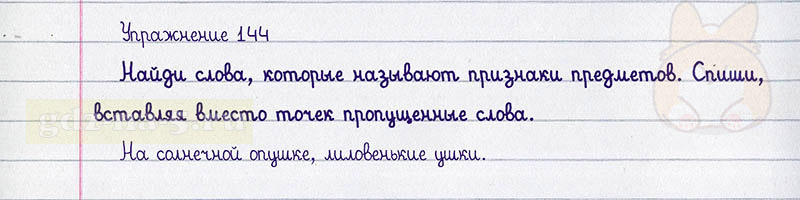 Упражнение 144
Найди слова, которые называют признаки предметов. Спиши,
вставляя вместо точек пропущенные слова.
На солнечной опушке, лиловенькие ушки.